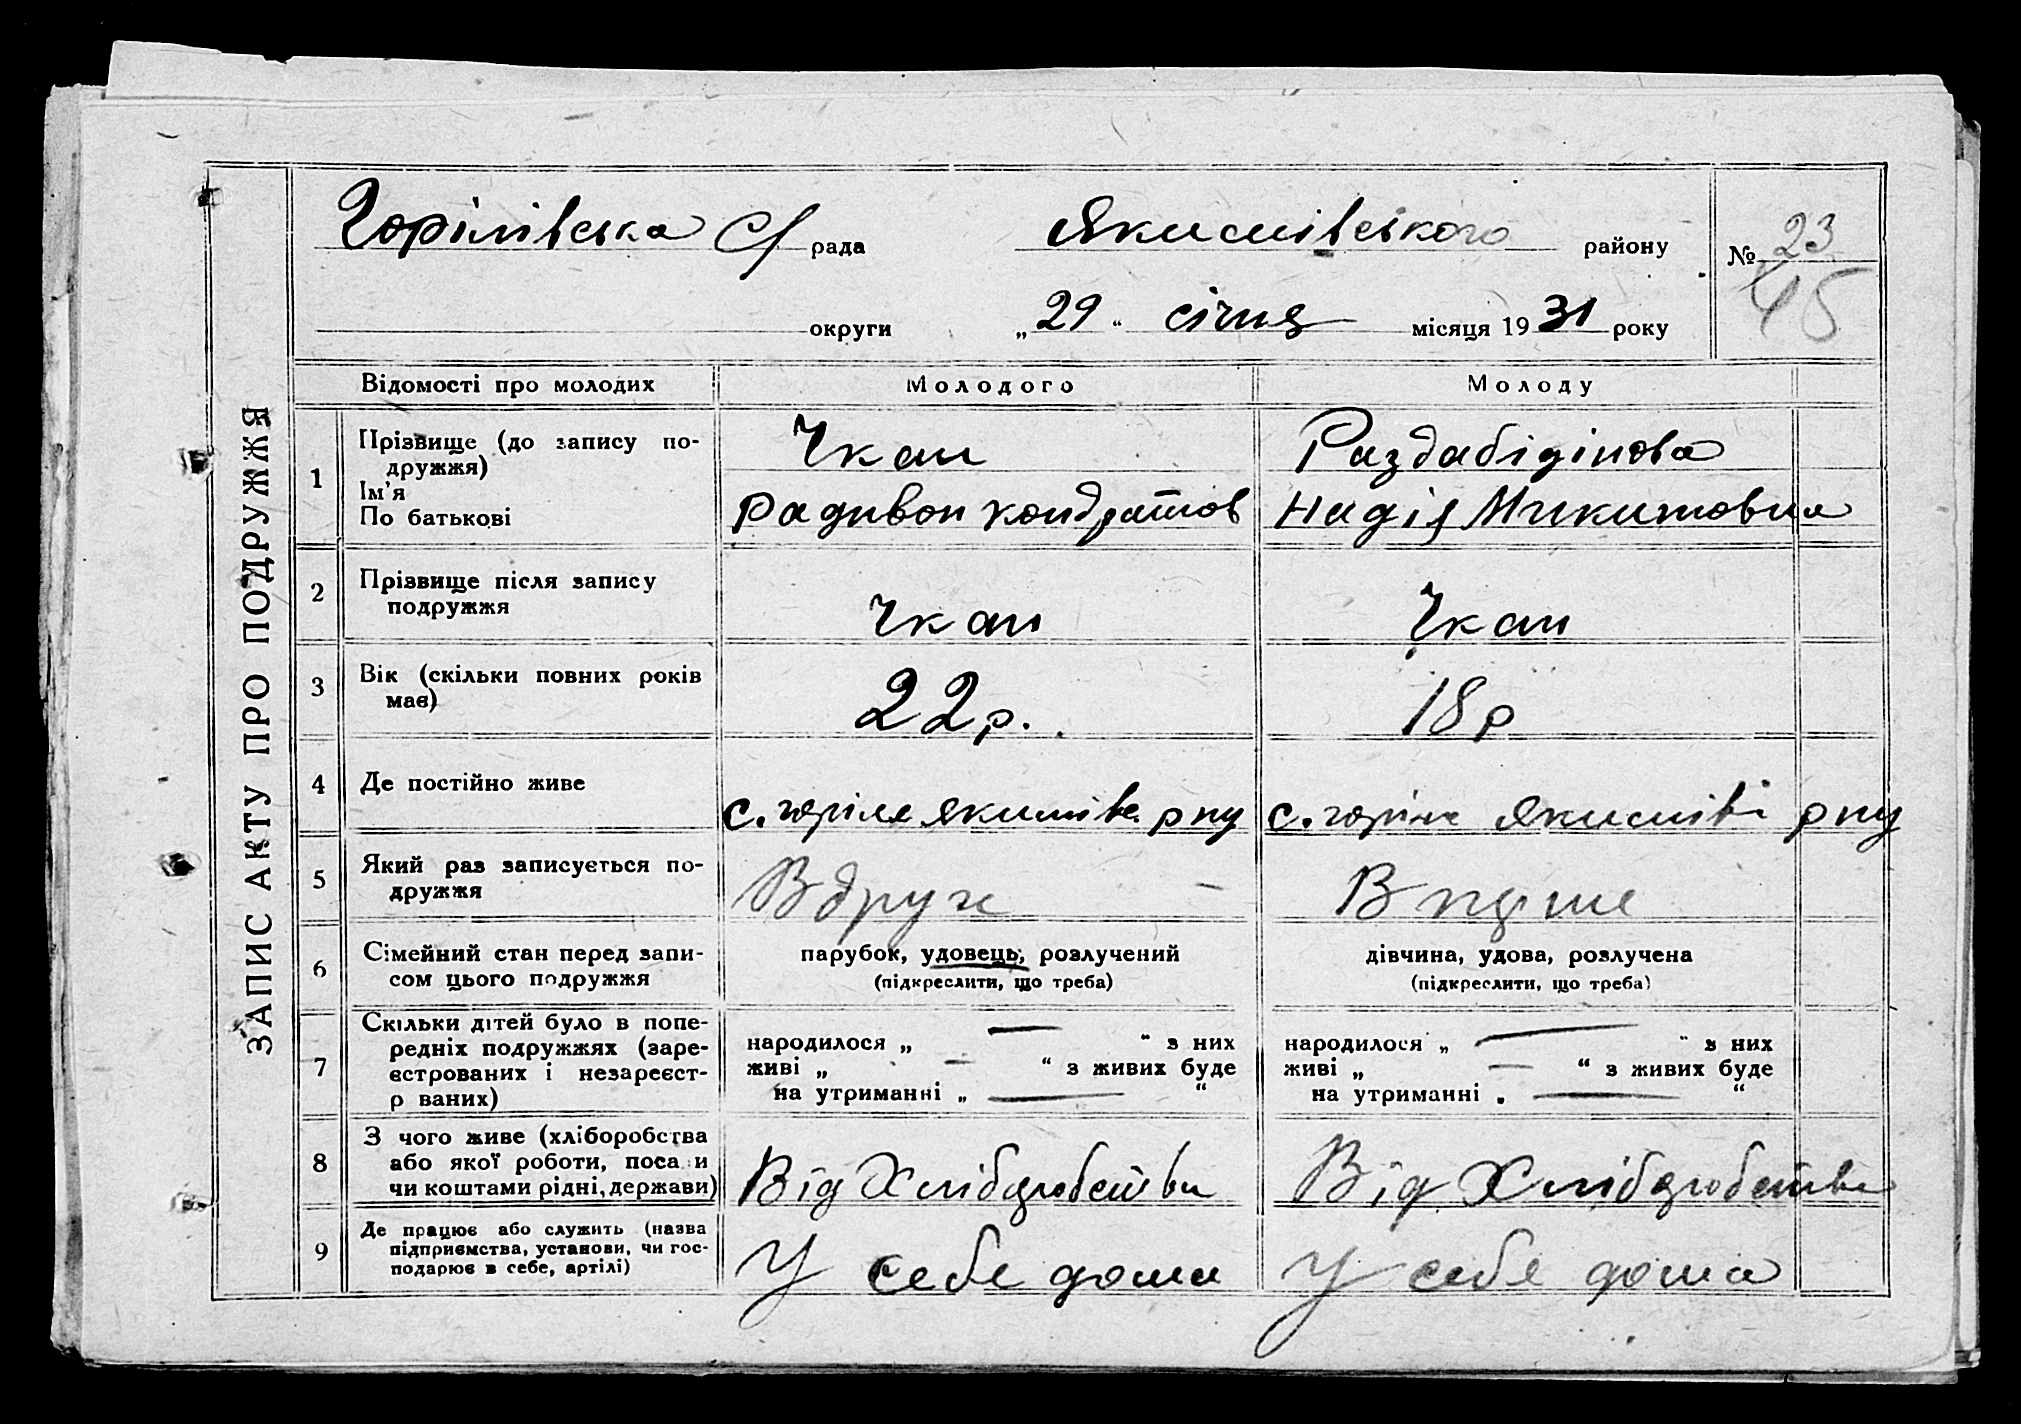 ЗАПИС АКТУ ПРО ПОДРУЖЖЯ
Горілівська с/рада Якимівського району № 23
45
округи „29“ січня місяця 1931 року
Відомості про молодих Молодого Молоду
1 Прізвище (до запису по-
дружжя)
Ім'я
По батькові
Чкан
Радивон Кондратов
Раздабідінова
Надія Микитовна
2 Прізвище після запису
подружжя
Чкан
Чкан
3 Вік (скільки повних років
має)
22 р.
18 р
4 Де постійно живе
с. горіле Якимівс. рну
с. горіле Якимівс рну
5 Який раз записується по-
дружжя
Вдруге
Вперше
6 Сімейний стан перед запи-
сом цього подружжя
парубок, удовець, розлучений
(підкреслити, що треба)
дівчина, удова, розлучена
(підкреслити, що треба)
7 Скільки дітей було в попе-
редніх подружжях (заре-
єстрованих і незареєст-
р ваних)
народилося „ — “ з них
живі „ — “ з живих буде
на утриманні „ — “
народилося „ — “ з них
живі „ — “ з живих буде
на утриманні „ — “
8 З чого живе (хліборобства
або якої роботи, поса и
чи коштами рідні, держави)
Від Хліборобства
Від Хліборобства
9 Де працює або служить (назва
підприємства, установи, чи гос-
подарює в себе, артілі)
У себе дома
У себе дома